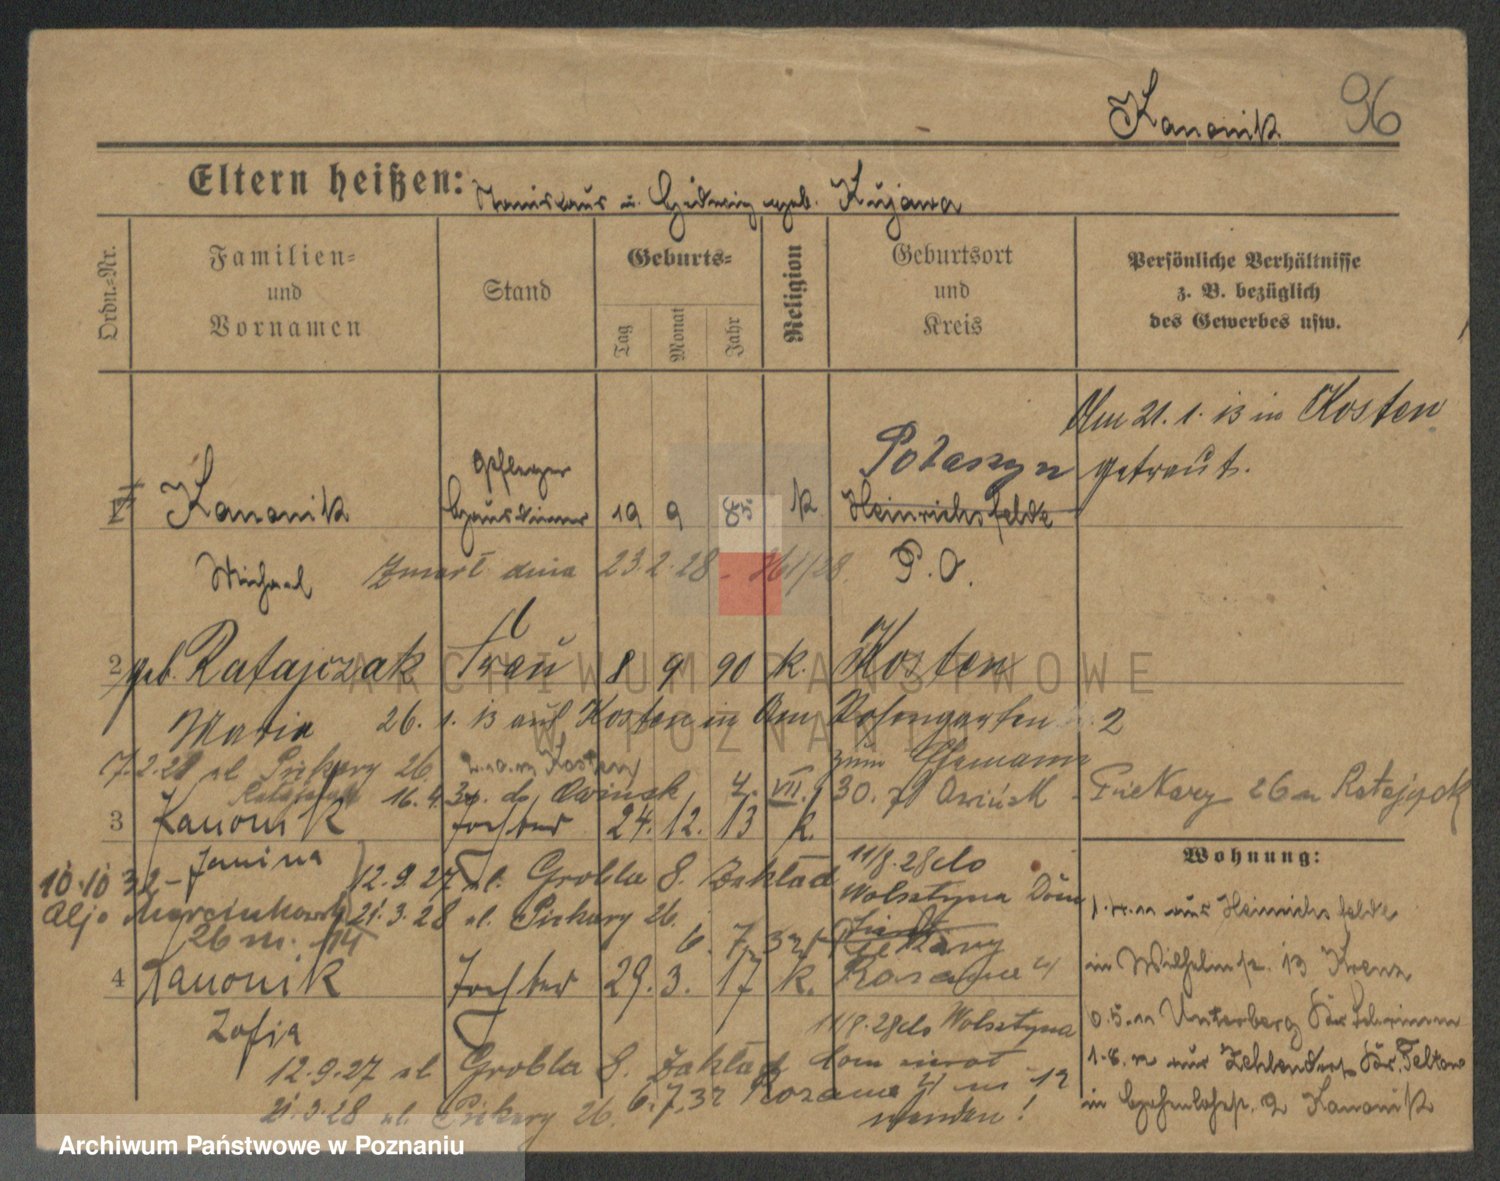 Kanonik 96
Eltern heißen: Stanislaus u. Hedwig geb. Kujawa
Ordn.-Nr.
Familien-
und
Vornamen
Stand
Geburts-
Tag
Monat
Jahr
Religion
Geburtsort
und
Kreis
Persönliche Verhältnisse
z. B. bezüglich
des Gewerbes usw.
Am 21. 1. 13 in Kosten
getraut.
Kanonik
Hausdiener
19 9 85 k
Heinrichsfelde
Michael
Zmarł dnia 23 2 28 - 261/28
P. O.
2 geb. Ratajczak Frau 8 9 90 k. Kosten
Maria 26. 1. 13 aus Kosten in Am Rosengarten 2
zum Ehemann
7.2.28 ul. Piekary 26
16. 4. do Owińsk 4. VII. 30. z Owińsk - Piekary 26 u Ratajczak
3 Kanonik Tochter 24. 12. 13 k.
Janina
12. 9. 27 ul. Grobla 8. Zakład
11/8. 28 do
Wolsztyna
10.10 32 -
21. 3. 28 ul. Piekary 26.
26 m. 14
6. 7. 32
Piekary
4 Kanonik Tochter 29. 3. 17 k. Rozana 4
Zofja
11/8. 28 do Wolsztyna
12. 9. 27 ul. Grobla 8. Zakład
21. 3. 28 ul. Piekary 26. 6. 7. 32 Rozana 4 m 12
wenden!
Wohnung:
1.4.11 aus Heinrichsfelde
in Wilhelmstr. 13 Krenz
0.5.11 Unterberg Kr. Schrimm
1.8.12 aus Zehlendorf Kr. Teltow
in Hohenlohestr. 2 Kanonik
ARCHIWUM PAŃSTWOWE
W POZNANIU
Archiwum Państwowe w Poznaniu